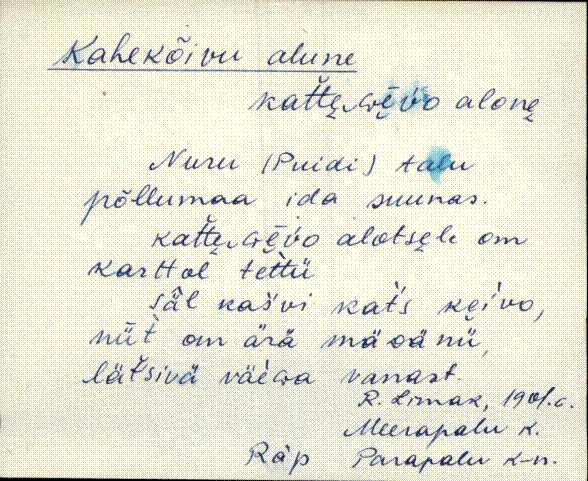 Kahekõivu alune
kat̆te̮ɢe̮i̯vo alone̮
Nuru (Puidi) talu
põllumaa ida suunas.
kat̆te̮ɢe̮i̯vo alotse̮le om
karttol tettü
säl kaśvi kat́s ke̮i̯vo,
nüt́ om ärä mäɢänü,
lät̆sivä väèɢa vanast.
R. Limak, 1901.a.
Meerapalu k.
Räp Parapalu k-n.